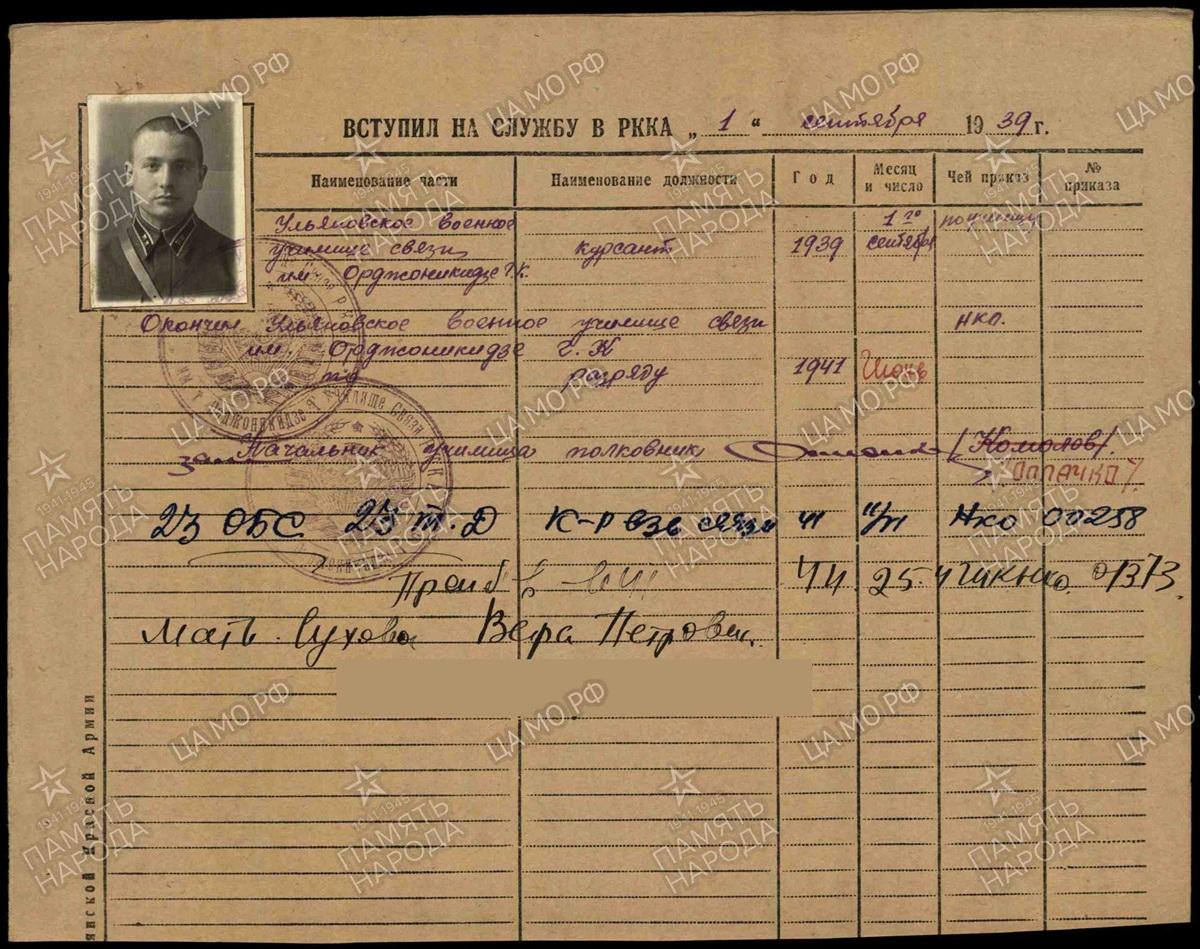 ВСТУПИЛ НА СЛУЖБУ В РККА „ 1 “ сентября 1939 г.
Наименование части Наименование должности Год Месяц и число Чей приказ № приказа
Ульяновское военное 1 го по училищу
училище связи курсант 1939 сентября
им Орджоникидзе Г.К.
Окончил Ульяновское военное училище связи НКО.
им. Орджоникидзе Г. К
по разряду 1941
зам Начальник училища полковник /Комолов/.
23 ОБС 23 т. Д К-р взв связи 41 НКО 00258
41 25.4
Мать Сухова Вера Петровна
янской Красной Армии
ЦА МО РФ
1941-1945
ПАМЯТЬ
НАРОДА